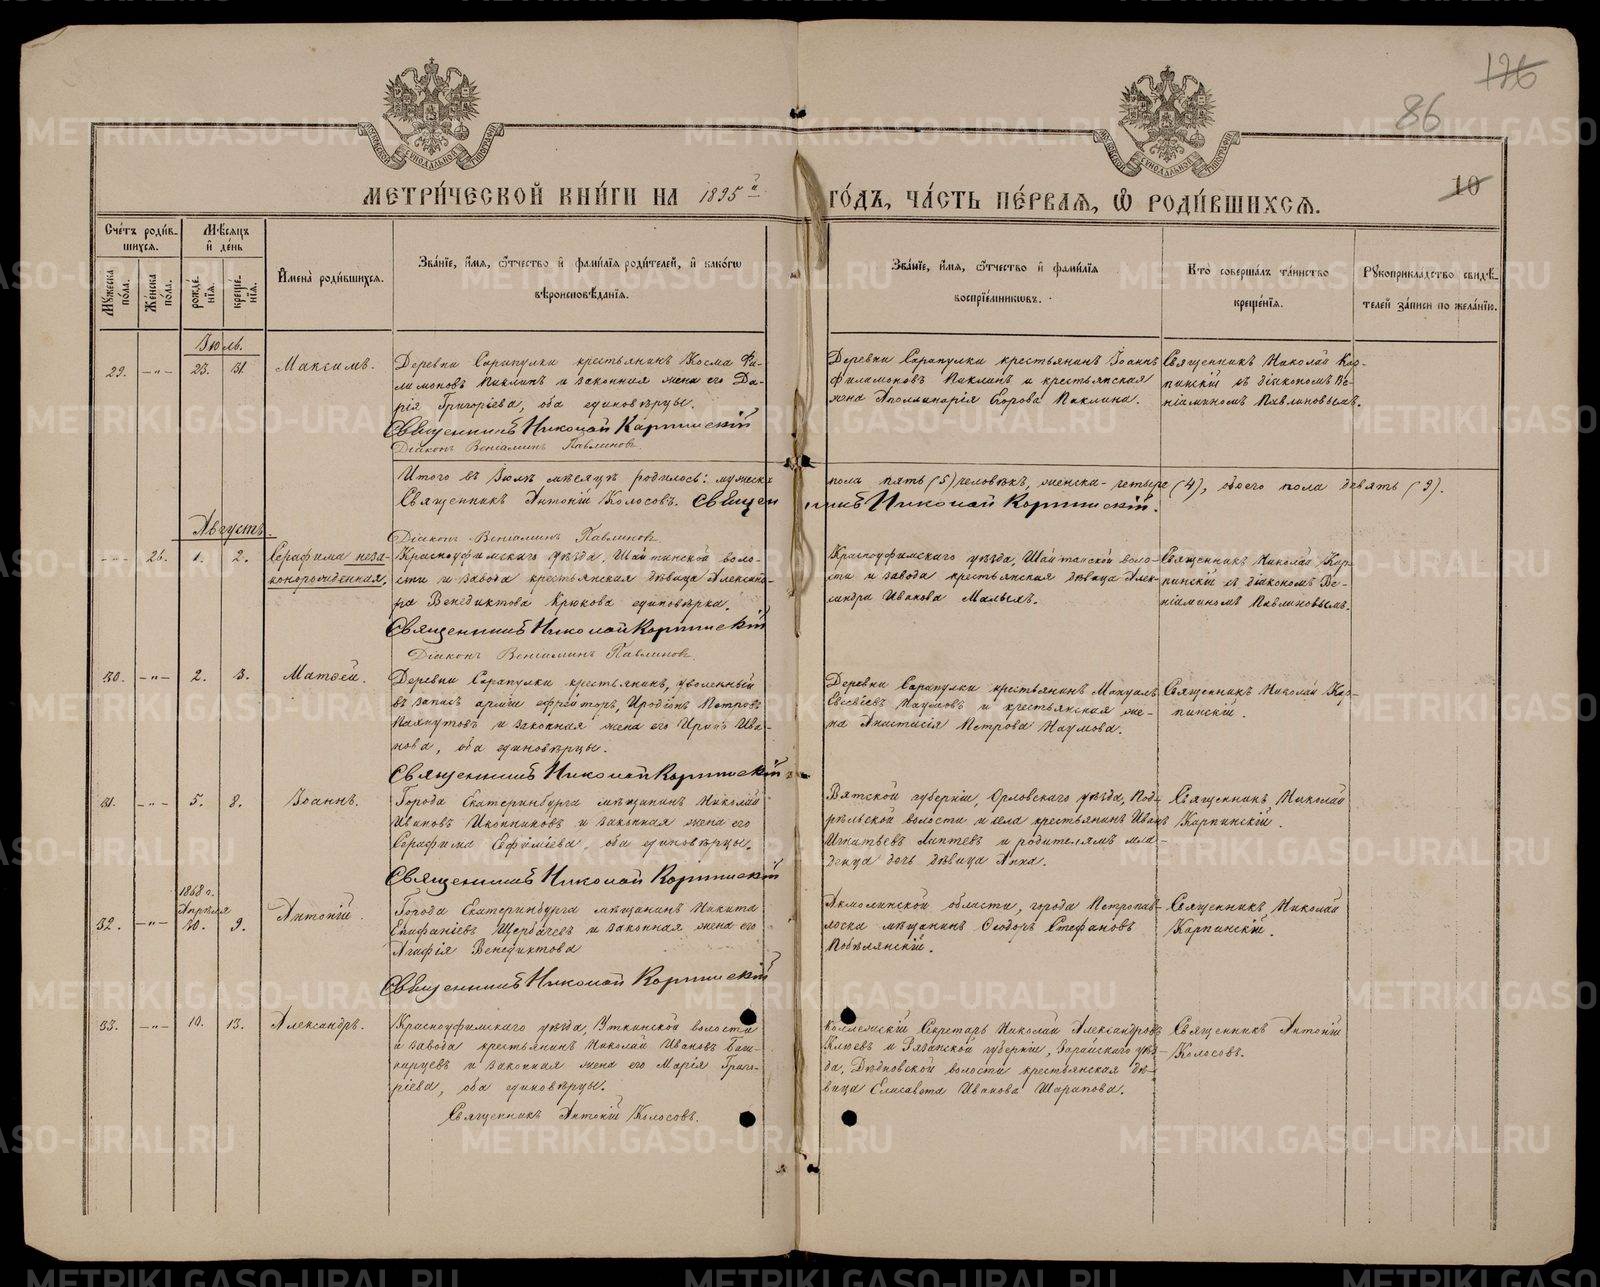 126
86
10
МОСКОВСКОЙ СѴНОДАЛЬНОЙ ТИПОГРАФІИ
МОСКОВСКОЙ СѴНОДАЛЬНОЙ ТИПОГРАФІИ
МЕТРИ́ЧЕСКОЙ КНИ́ГИ НА 1895 й
ГО́ДЪ, ЧА́СТЬ ПЕ́РВАѦ, Ѡ РОДИ́ВШИХСѦ.
Сче́тъ роди́в-
шихсѧ.
Мꙋ́жеска по́ла.
Же́нска по́ла.
Мѣ́сѧцъ и҆ де́нь
рожде́-нїѧ.
креще́-нїѧ.
И҆мена̀ роди́вшихсѧ.
Зва́нїе, и҆́мѧ, ѻ҆́тчество и҆ фами́лїѧ роди́телей, и҆ како́гѡ
вѣроисповѣ́данїѧ.
Зва́нїе, и҆́мѧ, ѻ҆́тчество и҆ фами́лїѧ
воспрїе́мникѡвъ.
Кто̀ соверша́лъ та́инство
креще́нїѧ.
Рꙋкоприкла́дство свидѣ́-
телей за́писи по жела́нїю.
Іюль.
29. -"- 23. 31. Максимъ.
Деревни Сарапулки крестьянинъ Косма Фи-
лимоновъ Паклинъ и законная жена его Да-
рія Григорьева, оба единовѣрцы.
Священникъ Николай Карпинскій
Діаконъ Веніаминъ Павлиновъ
Деревни Сарапулки крестьянинъ Іоаннъ
Филамоновъ Паклинъ и крестьянская
жена Аполлинарія Егорова Паклина.
Священникъ Николай Кар-
пинскій съ діакономъ Ве-
ніаминомъ Павлиновымъ.
Итого въ Іюлѣ мѣсяцѣ родилось: мужеска пола пять (5) человѣкъ, женска-четыре (4), обоего пола девять (9).
Священникъ Антоній Колосовъ. Священникъ Николай Карпинскій.
Діаконъ Веніаминъ Павлиновъ
Августъ.
-"- 26. 1. 2. Серафима неза-
коннорожденная.
Красноуфимскаго уѣзда, Шайтанской воло-
сти и завода крестьянская дѣвица Александ-
ра Венедиктова Крюкова единовѣрка.
Священникъ Николай Карпинскій
Діаконъ Веніаминъ Павлиновъ.
Красноуфимскаго уѣзда, Шайтанской воло-
сти и завода крестьянская дѣвица Алек-
сандра Иванова Малыхъ.
Священникъ Николай Кар-
пинскій съ діакономъ Ве-
ніаминомъ Павлиновымъ.
30. -"- 2. 3. Матѳей.
Деревни Сарапулки крестьянинъ, уволенный
въ запасъ арміи ефрейторъ, Иродіонъ Петровъ
и законная жена его Ирина Ива-
нова, оба единовѣрцы.
Священникъ Николай Карпинскій
Деревни Сарапулки крестьянинъ Мануилъ
Евсевіевъ Наумовъ и крестьянская же-
на Анастасія Петрова Наумова.
Священникъ Николай Кар-
пинскій.
31. -"- 5. 8. Іоаннъ.
Города Екатеринбурга мѣщанинъ Николай
Ивановъ Иконниковъ и законная жена его
Серафима Евѳиміева, оба единовѣрцы.
Священникъ Николай Карпинскій
Вятской губерніи, Орловскаго уѣзда, Под-
рѣльской волости и села крестьянинъ Иванъ
Игнатьевъ Лаптевъ и родителямъ мла-
денца дочь дѣвица Анна.
Священникъ Николай
Карпинскій.
1868 г.
Апрѣля
32. -"- 20. 9. Антоній.
Города Екатеринбурга мѣщанинъ Никита
Епифаніевъ Щербачевъ и законная жена его
Агафія Венедиктова
Священникъ Николай Карпинскій
Акмолинской области, города Петропав-
ловска мѣщанинъ Ѳеодоръ Стефановъ
Побѣлянскій.
Священникъ Николай
Карпинскій.
33. -"- 10. 13. Александръ.
Красноуфимскаго уѣзда, Уткинской волости
и завода крестьянинъ Николай Ивановъ
и законная жена его Марія Григо-
ріева, оба единовѣрцы.
Священникъ Антоній Колосовъ.
Коллежскій Секретарь Николай Александровъ
Клюевъ и Рязанской губерніи, Зарайскаго уѣз-
да, Дѣдновской волости крестьянская дѣ-
вица Елисавета Иванова Шарапова.
Священникъ Антоній
Колосовъ.
METRIKI.GASO-URAL.RU